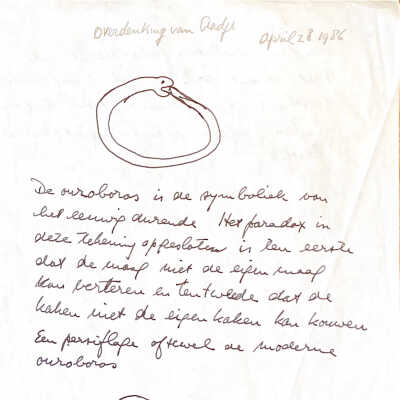 Overdenking van Aadje
April 28 1986
De ouroboros is de symboliek van
het eeuwig durende Het paradox in
deze tekening opgesloten is ten eerste
dat de maag niet de eigen maag
kan verteren en ten tweede dat de
kaken niet de eigen kaken kan kauwen
Een persiflage oftewel de moderne
ouroboros